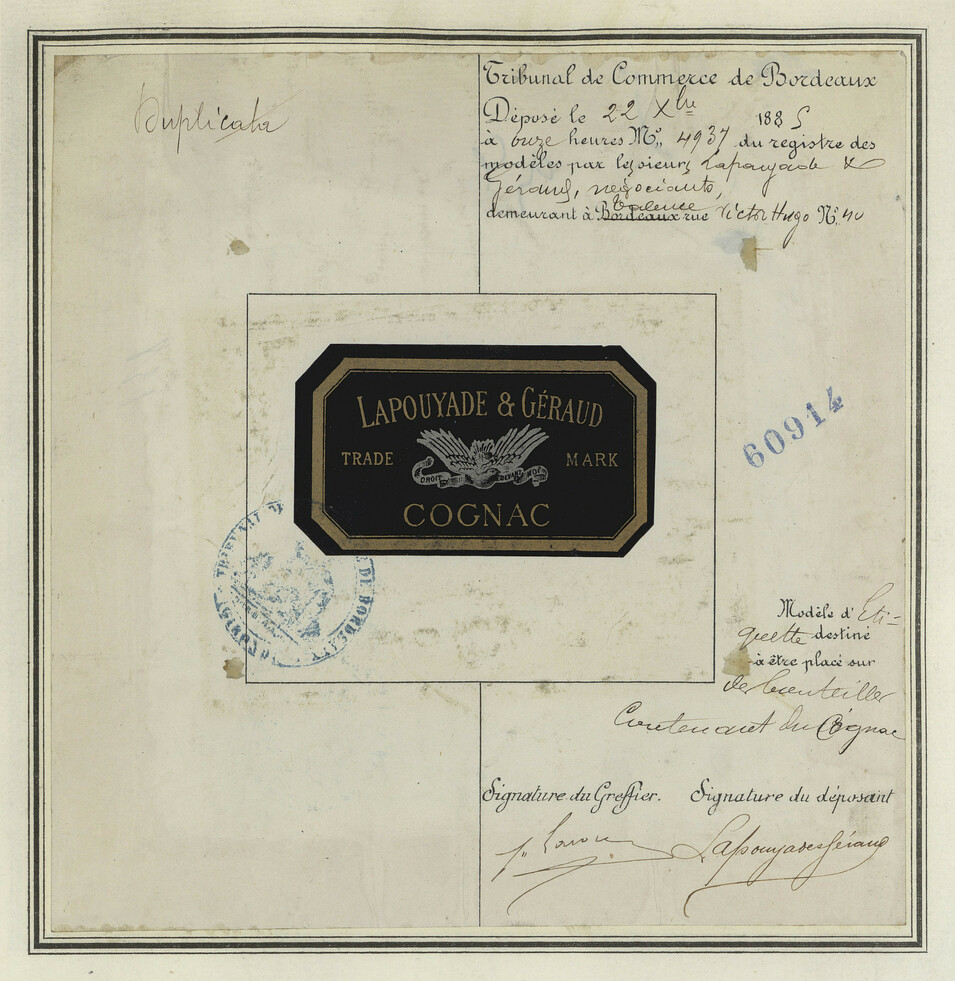 Duplicata
Tribunal de Commerce de Bordeaux
Déposé le 22 Xbre 1885
à onze heures No. 4937 du registre des
modèles par les sieurs Lapouyade &
Géraud, négociants,
Valence
demeurant à Bordeaux rue Victor Hugo No. 40
LAPOUYADE & GÉRAUD
TRADE MARK
DROIT
COGNAC
60914
TRIBUNAL DE
DE BORDEAUX
Modèle d'Eti=
quette destiné
à être placé sur
des bouteilles
Contenant du Cognac
Signature du Greffier. Signature du déposant
Lapouyade & Géraud